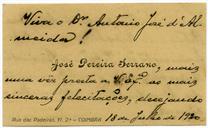 Viva o Dr. Antonio José d'Al-
meida!
José Pereira Serrano, mais
uma vez presta a V. Exª. as mais
sinceras felicitações, desejando
Rua das Padeiras, N. 2º — COIMBRA 18 de Julho de 1920